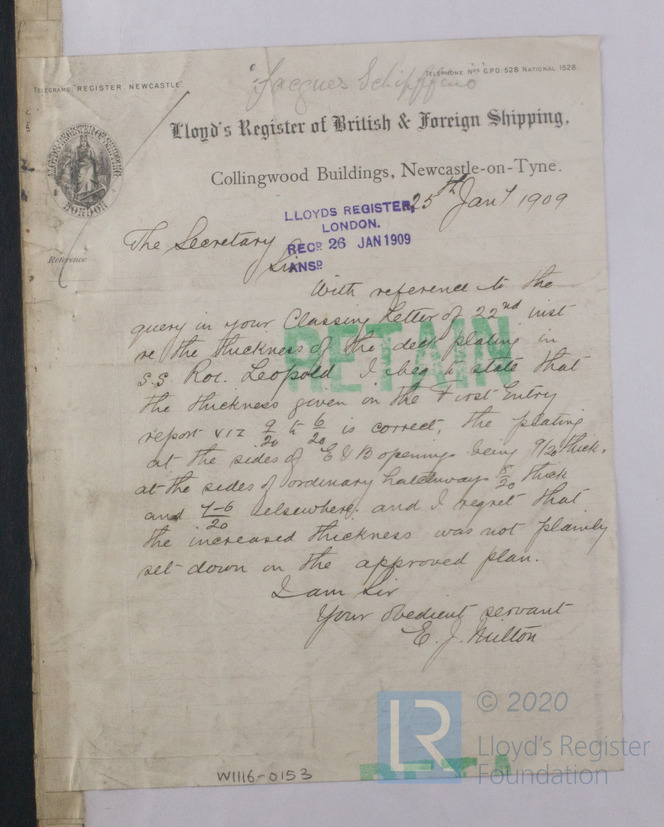 "Jacques Schipffeno
TELEGRAMS "REGISTER, NEWCASTLE"
TELEPHONE Nos G.P.O. 528 NATIONAL 1528
Lloyd's Register of British & Foreign Shipping,
Collingwood Buildings, Newcastle-on-Tyne.
LONDON
Reference
25th Jany 1909
LLOYDS REGISTER,
LONDON.
RECD 26 JAN 1909
ANSD
The Secretary
Sir
With reference to the
query in your Classing Letter of 22nd inst
re the thickness of the deck plating in
S.S Roi. Leopold I beg to state that
the thickness given on the First Entry
report viz 9/20 & 6/20 is correct, the plating
at the sides of E & B openings being 9/20 thick,
at the sides of ordinary hatchways 8/20 thick
and 7-6/20 elsewhere. and I regret that
the increased thickness was not plainly
set down in the approved plan.
I am Sir
Your obedient servant
E. J. Milton
RETAIN
W1116-0153
RETA
LR
© 2020
Lloyd's Register
Foundation